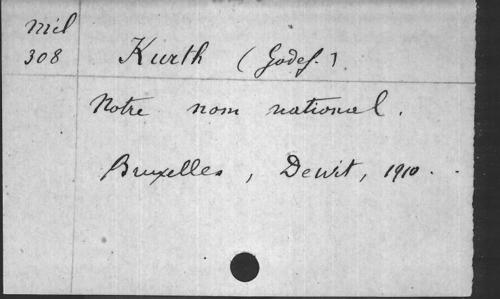 Mél
308
Kurth (Godef.)
Notre nom national.
Bruxelles, Dewit, 1910.